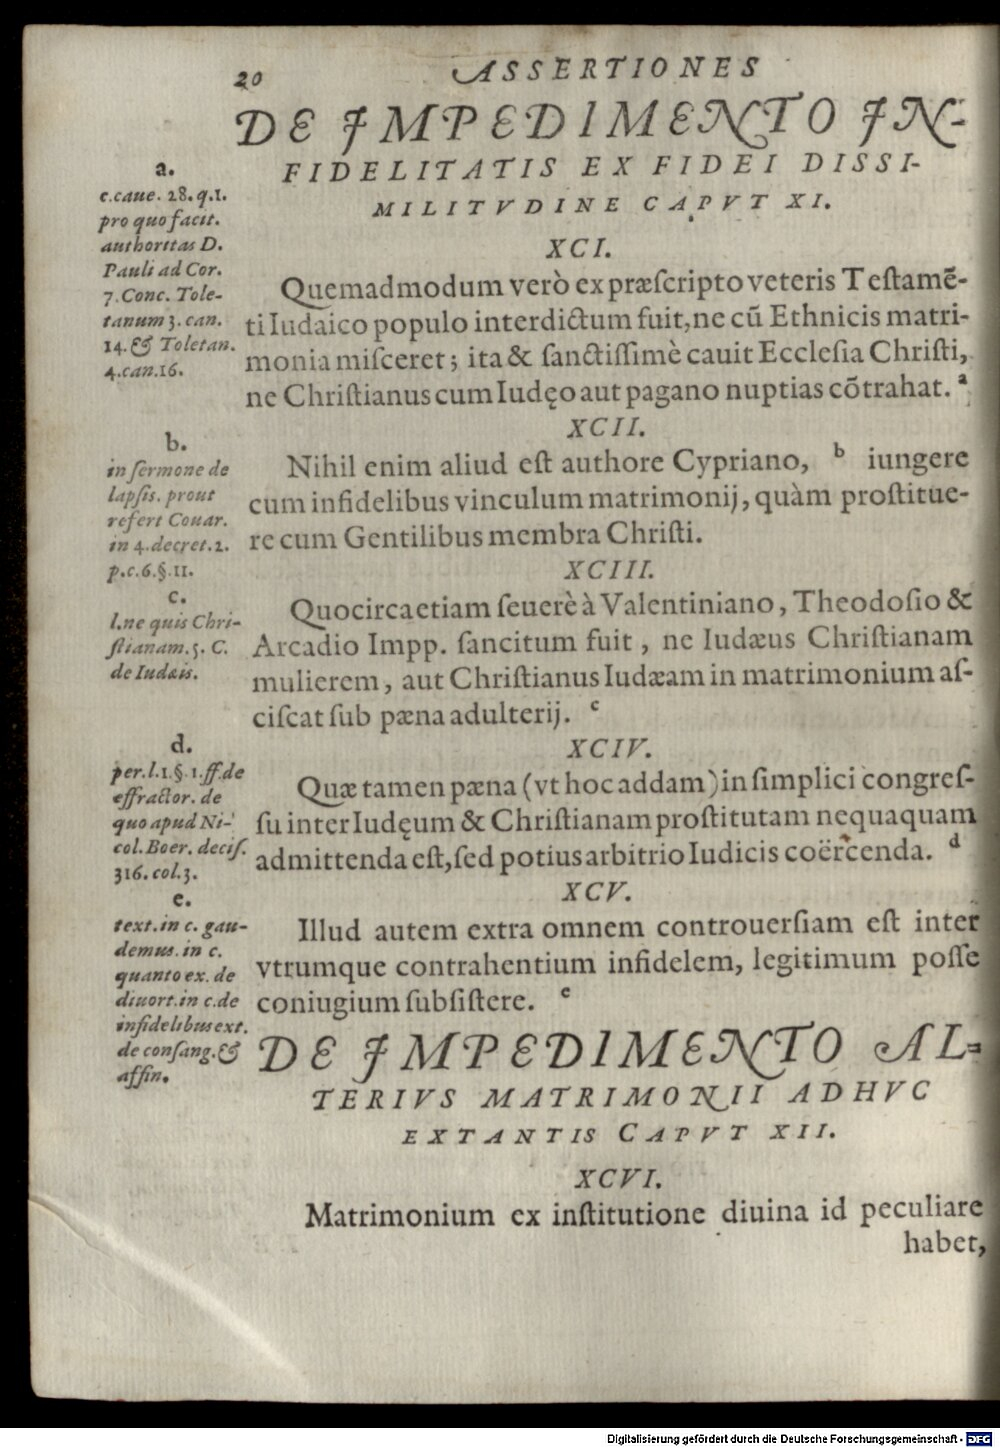 20
ASSERTIONES
DE IMPEDIMENTO IN-
FIDELITATIS EX FIDEI DISSI-
MILITVDINE CAPVT XI.
a.
c.caue. 28. q.1.
pro quo facit.
authoritas D.
Pauli ad Cor.
7. Conc. Tole-
tanum 3. can.
14. & Toletan.
4. can.16.
XCI.
Quemadmodum verò ex præſcripto veteris Teſtamē-
ti Iudaico populo interdictum fuit, ne cū Ethnicis matri-
monia miſceret; ita & ſanctiſſimè cauit Eccleſia Chriſti,
ne Chriſtianus cum Iudęo aut pagano nuptias cōtrahat. a
XCII.
b.
in ſermone de
lapſis. prout
refert Couar.
in 4. decret. 2.
p.c.6.§.11.
Nihil enim aliud eſt authore Cypriano, b iungere
cum infidelibus vinculum matrimonij, quàm proſtitue-
re cum Gentilibus membra Chriſti.
XCIII.
c.
l.ne quis Chri-
ſtianam. 5. C.
de Iudæis.
Quocirca etiam ſeuerè à Valentiniano, Theodoſio &
Arcadio Impp. ſancitum fuit, ne Iudæus Chriſtianam
mulierem, aut Chriſtianus Iudæam in matrimonium aſ-
ciſcat ſub pæna adulterij. c
XCIV.
d.
per.l.1.§.1.ff.de
effractor. de
quo apud Ni-
col. Boer. deciſ.
316. col.3.
Quæ tamen pæna (vt hoc addam) in ſimplici congreſ-
ſu inter Iudęum & Chriſtianam proſtitutam nequaquam
admittenda eſt, ſed potius arbitrio Iudicis coërcenda. d
XCV.
e.
text. in c. gau-
demus. in c.
quanto ex. de
diuort. in c. de
infidelibus ext.
de conſang. &
affin.
Illud autem extra omnem controuerſiam eſt inter
vtrumque contrahentium infidelem, legitimum poſſe
coniugium ſubſiſtere. e
DE IMPEDIMENTO AL-
TERIVS MATRIMONII ADHVC
EXTANTIS CAPVT XII.
XCVI.
Matrimonium ex inſtitutione diuina id peculiare
habet,
Digitalisierung gefördert durch die Deutsche Forschungsgemeinschaft - DFG